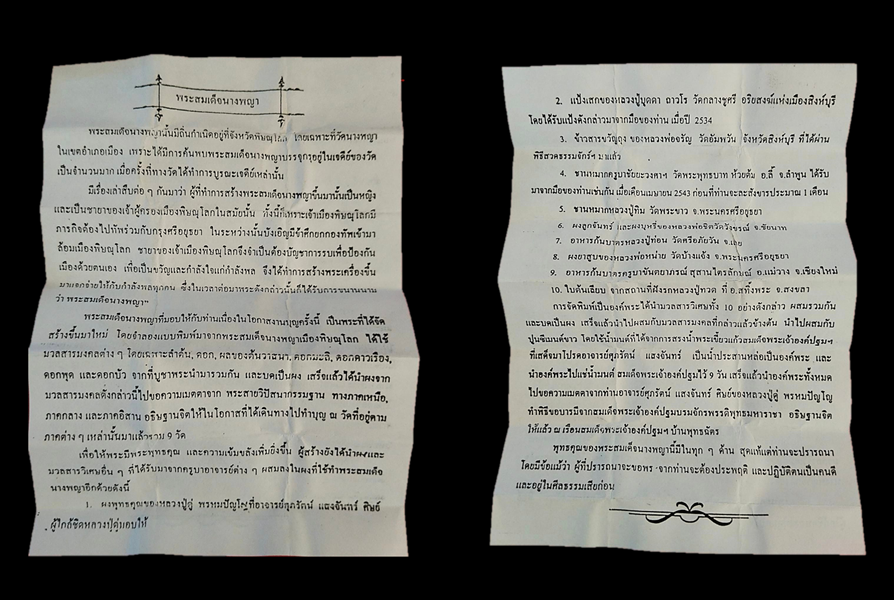 พระสมเด็จนางพญา
พระสมเด็จนางพญานั้นมีถิ่นกำเนิดอยู่ที่จังหวัดพิษณุโลก โดยเฉพาะที่วัดนางพญา
ในเขตอำเภอเมือง เพราะได้มีการค้นพบพระสมเด็จนางพญาบรรจุกรุอยู่ในเจดีย์ของวัด
เป็นจำนวนมาก เมื่อครั้งที่ทางวัดได้ทำการบูรณะเจดีย์เหล่านั้น
มีเรื่องเล่าสืบต่อ ๆ กันมาว่า ผู้ที่ทำการสร้างพระสมเด็จนางพญาขึ้นมานั้นเป็นหญิง
และเป็นชายาของเจ้าผู้ครองเมืองพิษณุโลกในสมัยนั้น ทั้งนี้ก็เพราะเจ้าเมืองพิษณุโลกมี
ภารกิจต้องไปทัพร่วมกับกรุงศรีอยุธยา ในระหว่างนั้นบังเอิญมีข้าศึกยกกองทัพเข้ามา
ล้อมเมืองพิษณุโลก ชายาของเจ้าเมืองพิษณุโลกจึงจำเป็นต้องบัญชาการรบเพื่อป้องกัน
เมืองด้วยตนเอง เพื่อเป็นขวัญและกำลังใจแก่กำลังพล จึงได้ทำการสร้างพระเครื่องขึ้น
มาแจกจ่ายให้กับกำลังพลทุกคน ซึ่งในเวลาต่อมาพระดังกล่าวนั้นก็ได้รับการขนานนาม
ว่า พระสมเด็จนางพญา"
พระสมเด็จนางพญาที่มอบให้กับท่านเนื่องในโอกาสงานบุญครั้งนี้ เป็นพระที่ได้จัด
สร้างขึ้นมาใหม่ โดยจำลองแบบพิมพ์มาจากพระสมเด็จนางพญาเมืองพิษณุโลก ได้ใช้
มวลสารมงคลต่าง ๆ โดยเฉพาะลำต้น, ดอก, ผลของต้นวาสนา, ดอกมะลิ, ดอกดาวเรือง,
ดอกพุด และดอกบัว จากที่บูชาพระนำมารวมกัน และบดเป็นผง เสร็จแล้วได้นำผงจาก
มวลสารมงคลดังกล่าวนี้ไปขอความเมตตาจาก พระสายวิปัสนากรรมฐาน ทางภาคเหนือ,
ภาคกลาง และภาคอิสาน อธิษฐานจิตให้ในโอกาสที่ได้เดินทางไปทำบุญ ณ วัดที่อยู่ตาม
ภาคต่าง ๆ เหล่านั้นมาแล้วรวม 9 วัด
เพื่อให้พระมีพระพุทธคุณ และความเข้มขลังเพิ่มยิ่งขึ้น ผู้สร้างยังได้นำผงและ
มวลสารวิเศษอื่น ๆ ที่ได้รับมาจากครูบาอาจารย์ต่าง ๆ ผสมลงในผงที่ใช้ทำพระสมเด็จ
นางพญาอีกด้วยดังนี้
1. ผงพุทธคุณของหลวงปู่ดู่ พรหมปัญโญ ที่อาจารย์ศุภรัตน์ แสงจันทร์ ศิษย์
ผู้ใกล้ชิดหลวงปู่ดู่มอบให้
2. แป้งเสกของหลวงปู่บุดดา ถาวโร วัดกลางชูศรี อริยสงฆ์แห่งเมืองสิงห์บุรี
โดยได้รับแป้งดังกล่าวมาจากมือของท่าน เมื่อปี 2534
3. ข้าวสารขวัญถุง ของหลวงพ่อจรัญ วัดอัมพวัน จังหวัดสิงห์บุรี ที่ได้ผ่าน
พิธีสวดธรรมจักร์ฯ มาแล้ว
4. ชานหมากครูบาชัยยะวงศาฯ วัดพระพุทธบาท ห้วยต้ม อ.ลี้ จ.ลำพูน ได้รับ
มาจากมือของท่านเช่นกัน เมื่อเดือนเมษายน 2543 ก่อนที่ท่านจะละสังขารประมาณ 1 เดือน
5. ชานหมากหลวงปู่ทิม วัดพระขาว จ.พระนครศรีอยุธยา
6. ผงลูกจันทร์ และผงบุหรี่ของหลวงพ่อชิตวัดวังขรณ์ จ.ชัยนาท
7. อาหารก้นบาตรหลวงปู่ท่อน วัดศรีอภัยวัน จ.เลย
8. ผงยาสูบของหลวงพ่อหน่าย วัดบ้านแจ้ง จ.พระนครศรีอยุธยา
9. อาหารก้นบาตรครูบาขันตยาภรณ์ สุสานไตรลักษณ์ อ.แม่วาง จ.เชียงใหม่
10. ใบต้นเฉียบ จากสถานที่ฝังรกหลวงปู่ทวด ที่ อ.สทิ้งพระ จ.สงขลา
การจัดพิมพ์เป็นองค์พระได้นำมวลสารวิเศษทั้ง 10 อย่างดังกล่าว ผสมรวมกัน
และบดเป็นผง เสร็จแล้วนำไปผสมกับมวลสารมงคลที่กล่าวแล้วข้างต้น นำไปผสมกับ
ปูนซีเมนต์ขาว โดยใช้น้ำมนต์ที่ได้จากการสรงน้ำพระเขี้ยวแก้วสมเด็จพระเจ้าองค์ปฐมฯ
ที่เสด็จมาโปรดอาจารย์ศุภรัตน์ แสงจันทร์ เป็นน้ำประสานหล่อเป็นองค์พระ และ
นำองค์พระไปแช่น้ำมนต์ สมเด็จพระเจ้าองค์ปฐมไว้ 9 วัน เสร็จแล้วนำองค์พระทั้งหมด
ไปขอความเมตตาจากท่านอาจารย์ศุภรัตน์ แสงจันทร์ ศิษย์ของหลวงปู่ดู่ พรหมปัญโญ
ทำพิธีขอบารมีจากสมเด็จพระเจ้าองค์ปฐมบรมจักรพรรดิพุทธมหาราชา อธิษฐานจิต
ให้แล้ว ณ เรือนสมเด็จพระเจ้าองค์ปฐมฯ บ้านพุทธฉัตร
พุทธคุณของพระสมเด็จนางพญานี้มีในทุก ๆ ด้าน สุดแท้แต่ท่านจะปรารถนา
โดยมีข้อแม้ว่า ผู้ที่ปรารถนาจะขอพร จากท่านจะต้องประพฤติ และปฏิบัติตนเป็นคนดี
และอยู่ในศีลธรรมเสียก่อน